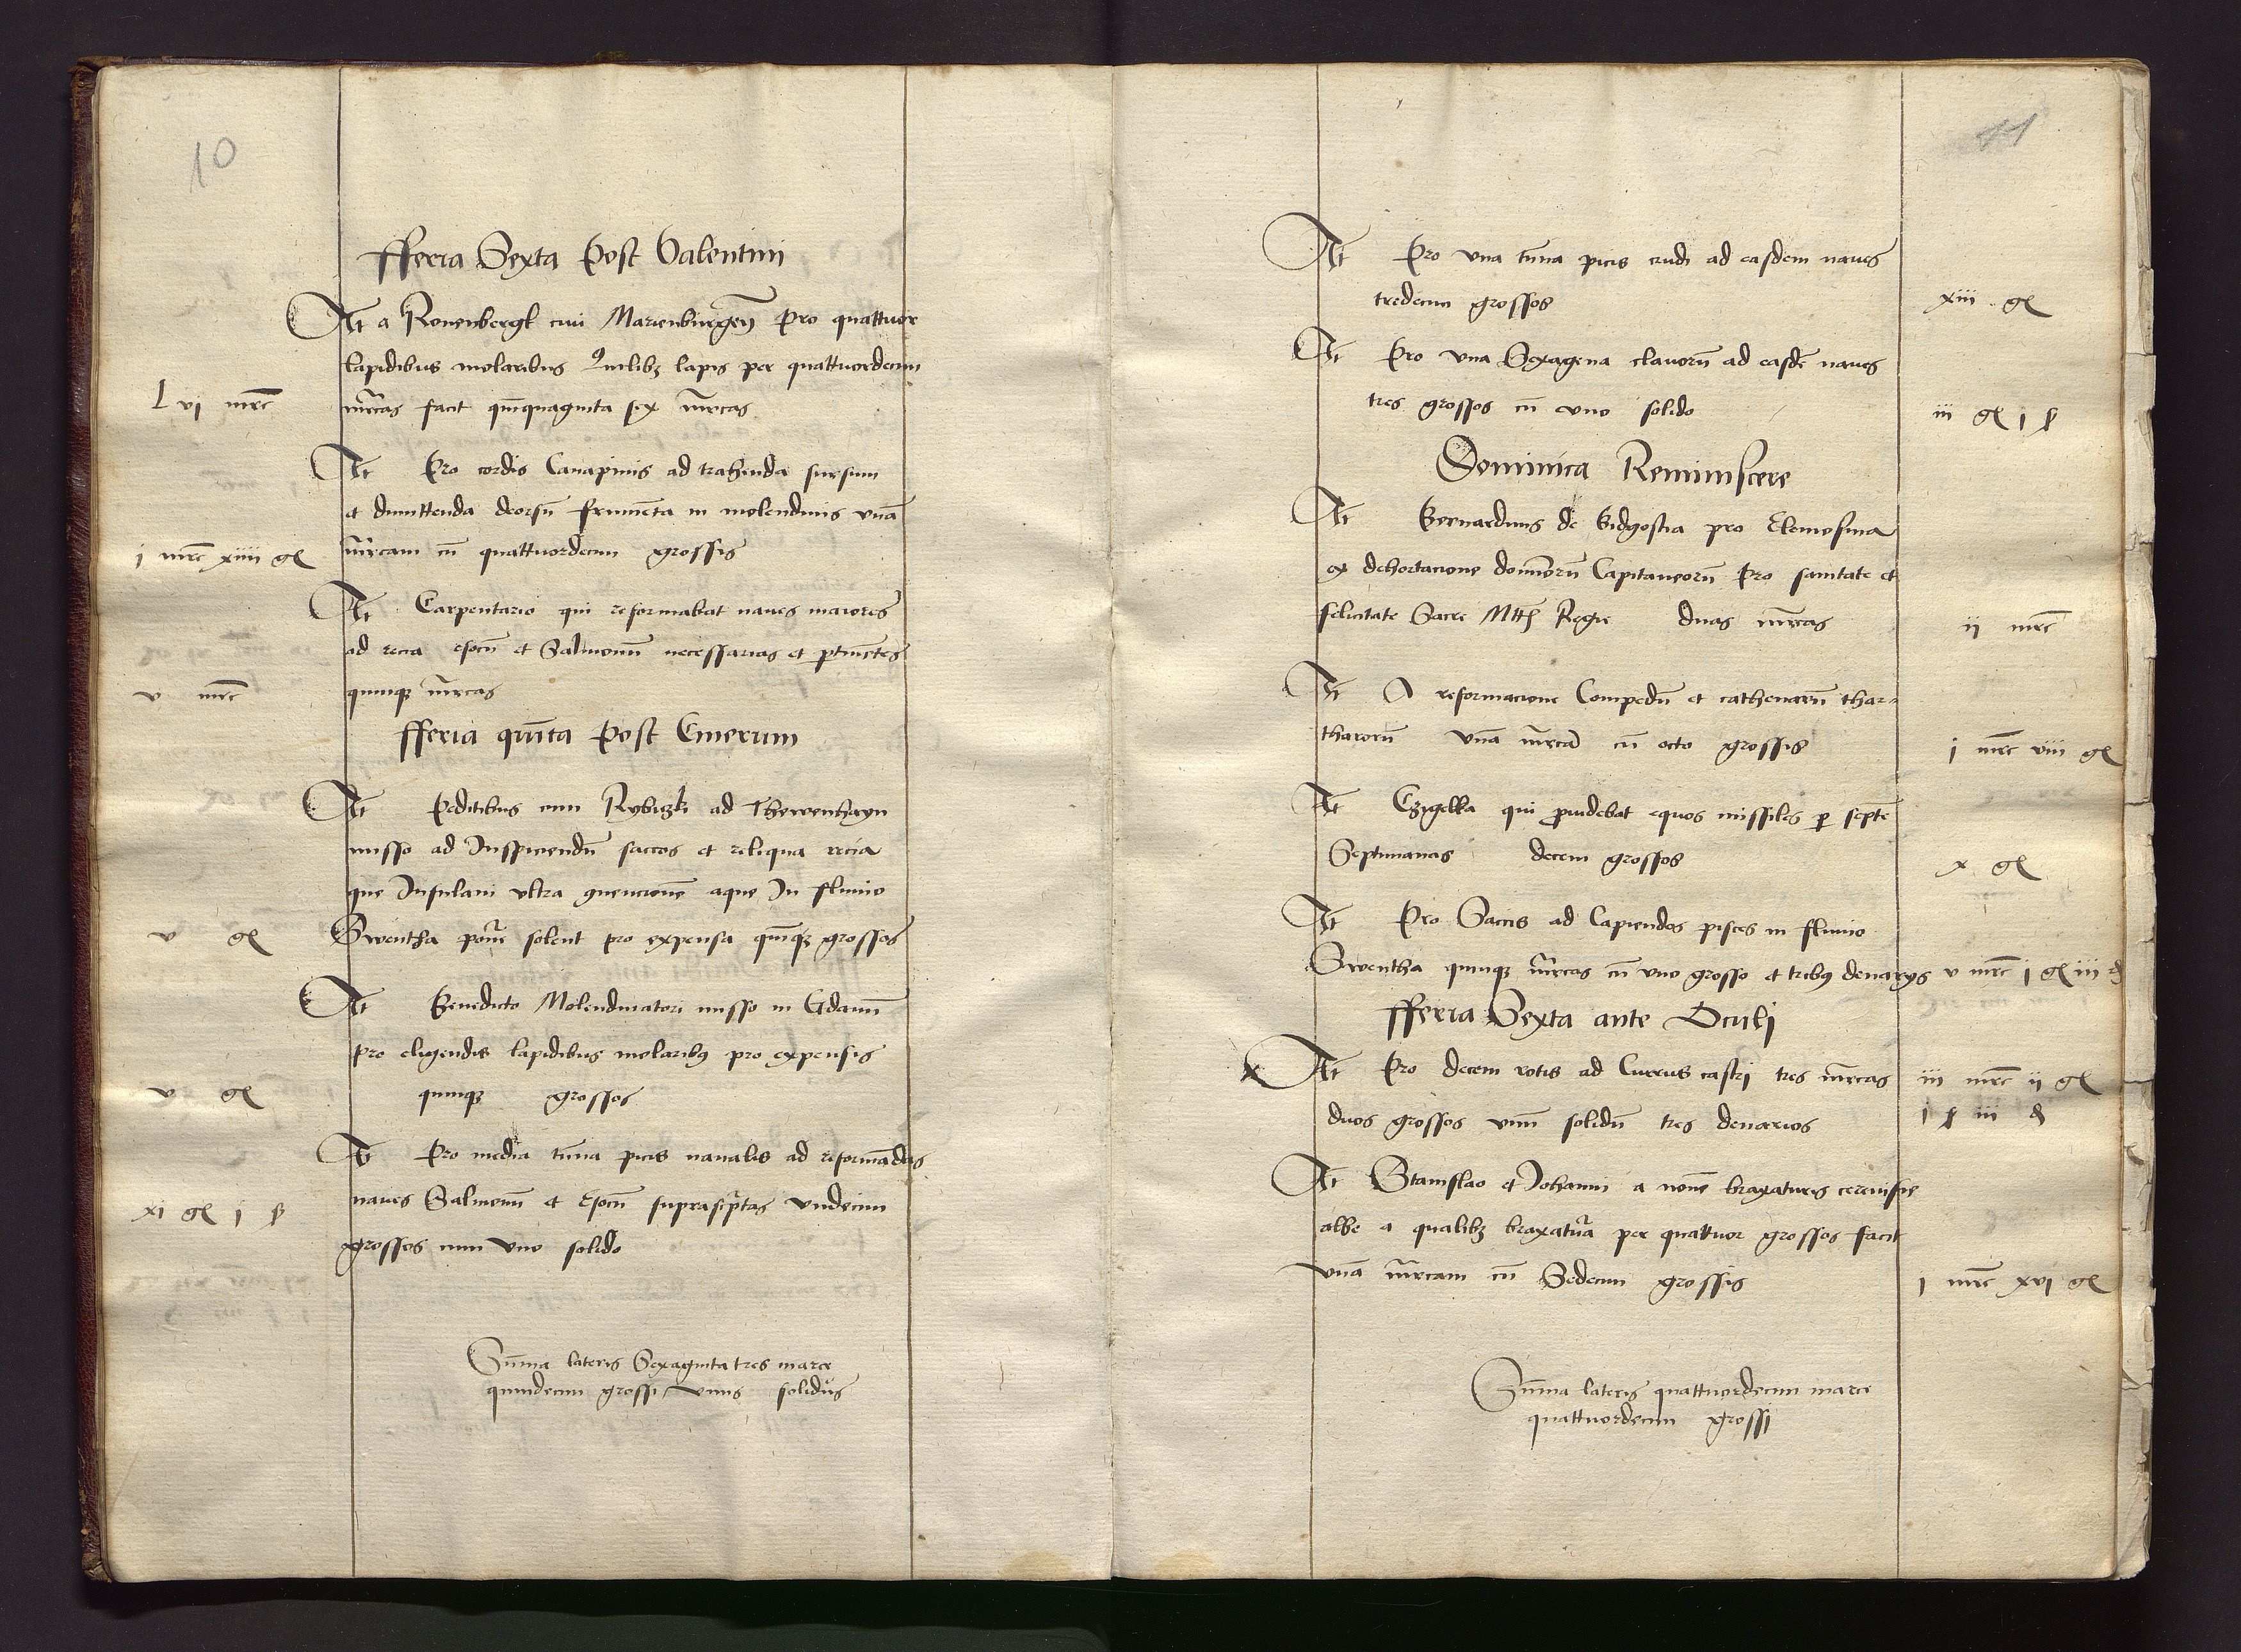 10
fferia Sexta Post Valentini
It a Ronenbergk civi Marienburgen̄ Pro quattuor
lapidibus molaribus Quilibꝫ lapis per quattuordecim
L vj mrc̄ mr̄cas facit quīquaginta sex mr̄cas
It Pro cordis Canapinis ad trahenda sursum
et dimittenda deorsū frumēta in molendinis vnā
j mrc̄ xiiij gꝭ mr̄cam cū quattuordecim grossis
It Carpentario qui reformabat naues maiores
ad recia esocū et Salmonū necessarias et ꝑtinētes
v mrc̄ quinqꝫ mr̄cas
fferia quīta Post Cinerum
It Peditibus cum Rybiczki ad Thewenhayn
misso ad Inspiciendū saccos et reliqua recia
que Insulani vltra ꝯuencionē aque In fluuio
v gꝭ Swentha ponr̄e solent pro expensa quīqꝫ grossos
It Benedicto Molendinatori misso in Gdanū
pro eligendis lapidibus molaribꝯ pro expensis
v gꝭ quinqꝫ grossos
It Pro media tūna picis naualis ad reformādas
naues Salmonū et Esocū suprascr̄ptas vndecim
xi gꝭ j ꝭ grossos cum vno solido
Sūma lateris Sexaginta tres marce
quindecim grossi vnus solidus
11
It Pro vna tūna picis crudi ad easdem naues
tredecim grossos xiii gꝭ
It Pro vna Sexagena clauorū ad easdē naues
tres grossos cū vno solido iii gꝭ j ꝭ
Dominica Reminiscere
It Bernardinis de Bidgostia pro Elemosina
ex dehortacione dominorū Capitaneorū Pro sanitate et
felicitate Sacre Mttꝭ Regie duas mr̄cas ij mrc̄
It A reformacione Compedū et cathenarū thar-
tharorū vnā mr̄cā cū octo grossis j mrc̄ viii gꝭ
It Czigelka qui ꝓuidebat equos missiles ꝑ septē
Septimanas decem grossos x gꝭ
It Pro Saccis ad Capiendos pisces in fluuio
Swentha quinqꝫ mr̄cas cū vno grosso et tribꝯ denarijs v mrc̄ j gꝭ iii ₰
fferia Sexta ante Oculi
x It Pro decem rotis ad Currus castrj tres mr̄cas iii mrc̄ ij gꝭ
duos grossos vnū solidū tres denarios j ꝭ iii ₰
It Stanislao et Johanni a nouē braxaturis ceruisie
albe a qualibꝫ braxatura per quattuor grossos facit
vnā mr̄cam cū Sedecim grossis j mrc̄ xvj gꝭ
Sūma lateris quattuordecim marce
quattuordecim grossi